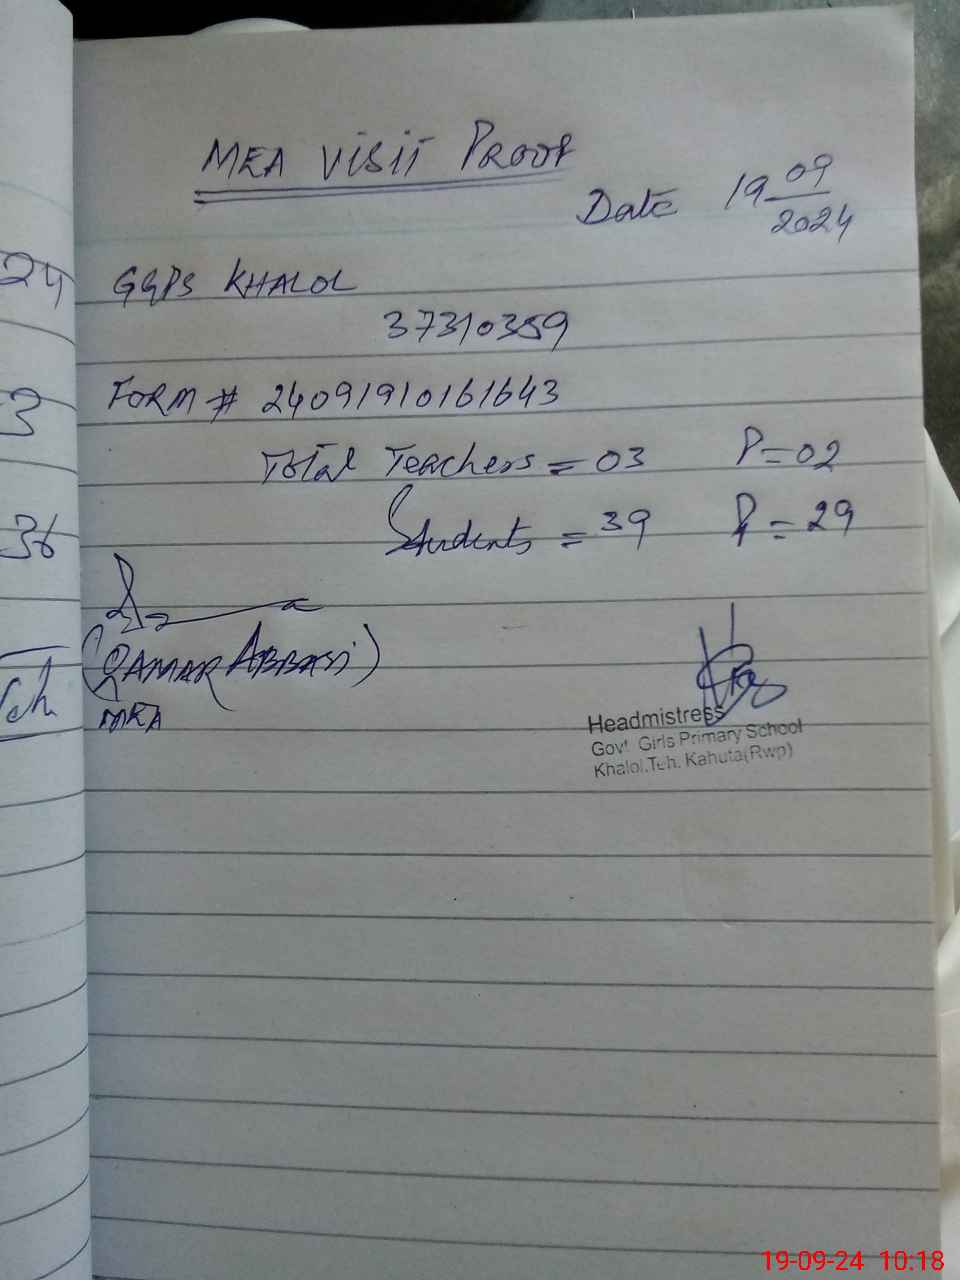 MEA VISIT PROOF
Date 19 09/2024
GGPS KHALOL
37310359
FORM # 24091910161643
Total Teachers = 03 P = 02
Students = 39 P = 29
(QAMAR ABBASI)
MEA
Headmistress
Govt Girls Primary School
Khalol.Teh. Kahuta(Rwp)
24
3
36
19-09-24 10:18